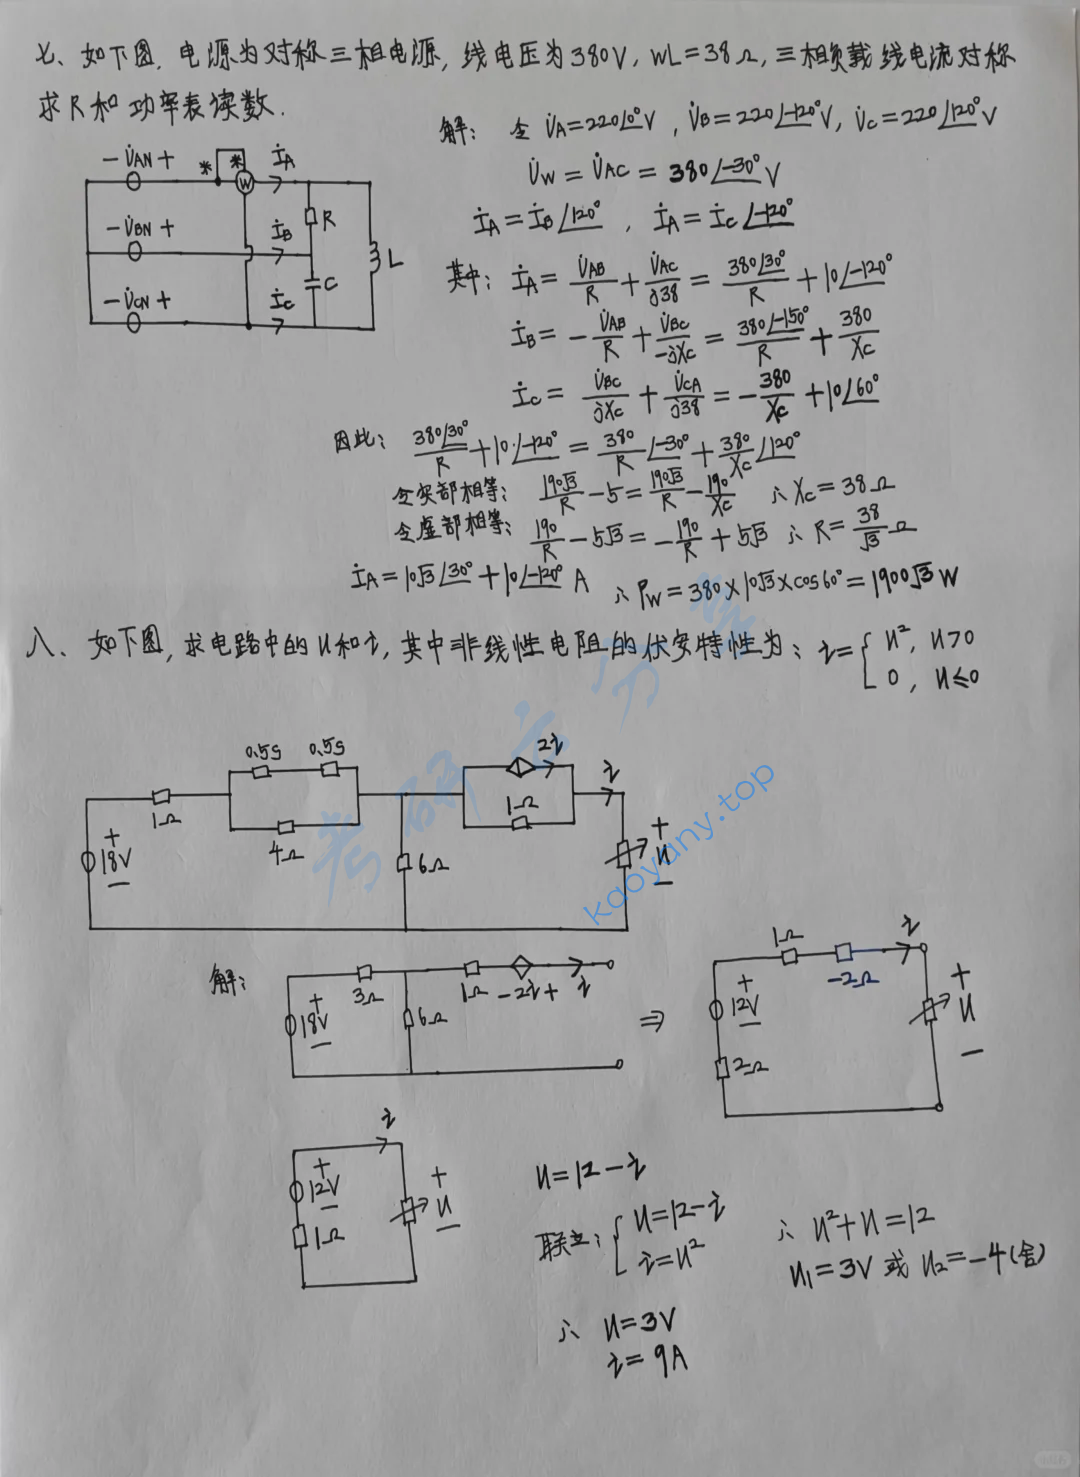 七、如下图,电源为对称三相电源,线电压为380V,WL=38Ω,三相负载线电流对称
求R和功率表读数.
解: 令 U̇A=220∠0°V , U̇B=220∠-120°V, U̇C=220∠120°V
U̇W = U̇AC = 380∠-30°V
İA=İB∠120° , İA=İC∠-120°
- U̇AN +
* * W İA
- U̇BN +
İB R
L
- U̇CN +
İC C
其中: İA = U̇AB/R + U̇AC/j38 = 380∠30°/R + 10∠-120°
İB = -U̇AB/R + U̇BC/-jXC = 380∠-150°/R + 380/XC
İC = U̇BC/jXC + U̇CA/j38 = -380/XC + 10∠60°
因此: 380∠30°/R + 10∠-120° = 380/R ∠-30° + 380/XC ∠120°
令实部相等: 190√3/R - 5 = 190√3/R - 190/XC ∴ XC = 38Ω
令虚部相等: 190/R - 5√3 = -190/R + 5√3 ∴ R = 38/√3 Ω
İA = 10√3∠30° + 10∠-120° A ∴ PW = 380×10√3×cos60° = 1900√3 W
八、如下图,求电路中的u和i,其中非线性电阻的伏安特性为: i = { u², u>0
0, u≤0
0.5S 0.5S 2i
1Ω 4Ω 1Ω i
+ 18V -
6Ω
+ u -
解:
3Ω 1Ω - 2i + i
+ 18V -
6Ω
⇒
1Ω -2Ω i
+ 12V -
2Ω
+ u -
i
+ 12V -
1Ω
+ u -
u = 12 - i
联立: { u = 12 - i
i = u²
∴ u² + u = 12
u₁ = 3V 或 u₂ = -4(舍)
∴ u = 3V
i = 9A
考研云分享
kaoyany.top